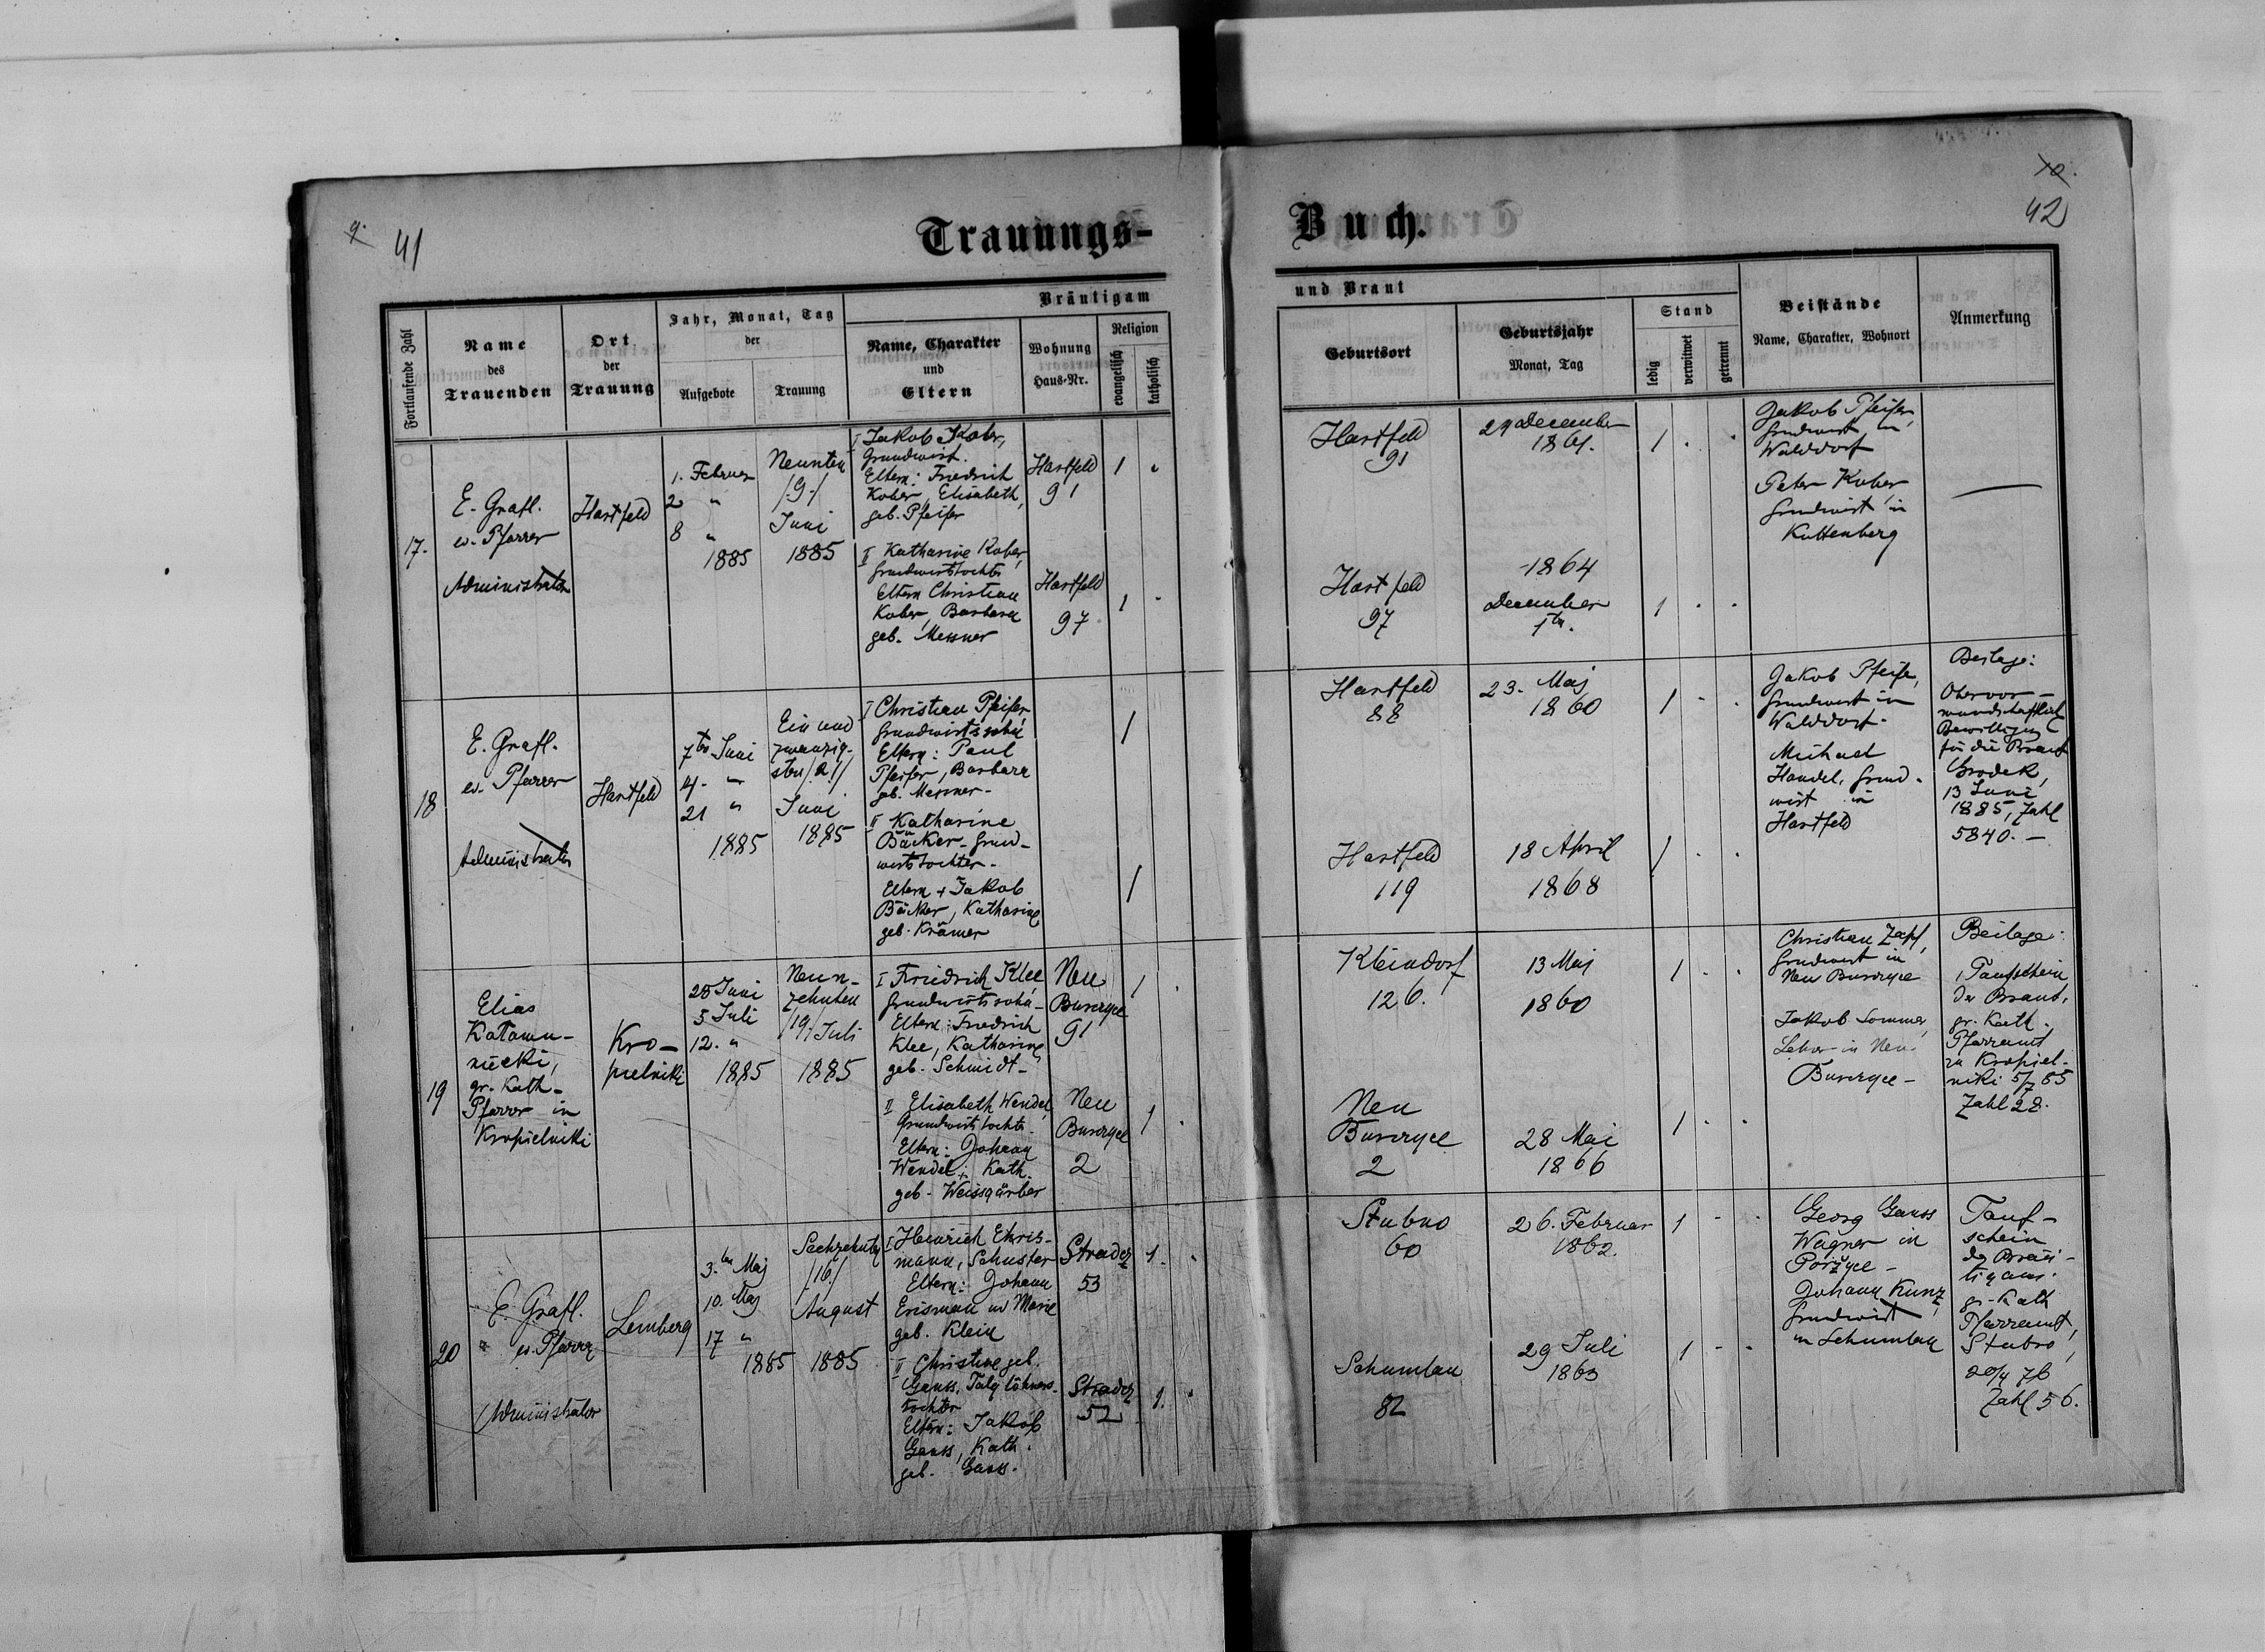 41
Trauungs-
Buch.
42
Fortlaufende Zahl
Name
des
Trauenden
Ort
der
Trauung
Jahr, Monat, Tag
der
Aufgebote
Trauung
Bräutigam
Name, Charakter
und
Eltern
Wohnung
Haus-Nr.
Religion
evangelisch
katholisch
und Braut
Geburtsort
Geburtsjahr
Monat, Tag
Stand
ledig
verwitwet
getrennt
Beistände
Name, Charakter, Wohnort
Anmerkung
17.
E. Grafl.
ev. Pfarrer
Administrator
Hartfeld
1. Februar
2 "
8 "
1885
Neunten
/9./
Juni
1885
I Jakob Kober,
Grundwirt.
Eltern: Friedrich
Kober, Elisabeth,
geb. Pfeifer
Hartfeld
91
1
II Katharine Kober,
Grundwirtstochter
Eltern Christian
Kober, Barbara
geb. Messner
Hartfeld
97
1
Hartfeld
91
29 December
1861.
1
Hartfeld
97
1864
December
1ten.
1
Jakob Pfeifer,
Grundwirt in
Walddorf
Peter Kober
Grundwirt in
Kuttenberg
18
E. Grafl.
ev. Pfarrer
Administrator
Hartfeld
7ten Juni
14. "
21 "
1885
Ein und
zwanzig-
sten /21/
Juni
1885
I Christian Pfeifer,
Grundwirtssohn
Eltern: Paul
Pfeifer, Barbara
geb. Messner-
1
II Katharine
Bäcker- Grund-
wirtstochter-
Eltern + Jakob
Bäcker, Katharine
geb. Krämer
1
Hartfeld
88
23. Maj
1860
1
Hartfeld
119
18 April
1868
1
Jakob Pfeifer,
Grundwirt in
Walddorf-
Michael
Handel, Grund-
wirt in
Hartfeld
Beilage:
Obervor-
mundschaftlich
Bewilligung
für die Braut
Grodek,
13 Juni
1885, Zahl
5840.-
19
Elias
nięcki,
gr. Kath-
Pfarrer in
Kropielniki
Kro-
pielniki
28 Juni
5 Juli
12. "
1885
Neun-
zehnten
/19./ Juli
1885
I Friedrich Klee
Grundwirtssohn-
Eltern: Friedrich
Klee, Katharine
geb. Schmidt-
Neu
Burczyce
91
1
II Elisabeth Wendel,
Grundwirtstochter-
Eltern: Johann
Wendel + Kath.
geb. Weissgärber
Neu
Burczyce
2
1
Kleindorf
126.
13 Maj
1860
1
Neu
Burczyce
2
28 Mai
1866
1
Christian Zapf,
Grundwirt in
Neu Burczyce
Jakob Sommer,
Lehrer in Neu-
Burczyce-
Beilage:
1 Taufschein
der Braut,
gr. Kath.
Pfarramt
zu Kropiel-
niki 5/7 85
Zahl 28.
20
E. Grafl.
ev. Pfarrer
Administrator
Lemberg
3.ten Maj
10. Maj
17 "
1885
Sechzehnten
/16./
August
1885
I Heinrich Ehris-
mann, Schuster
Eltern: Johann
Erisman u Marie
geb. Klein
Stradcz
53
1.
II Christine geb.
Gauss, Taglöhners-
tochter
Eltern: Jakob
Gauss, Kath.
geb. Gauss.
Stradcz
52
1.
Stubno
60
26. Februar
1862.
1
Schumlau
82
29 Juli
1863
1
Georg Gauss
Wagner in
Porzyce-
Johann Kunz,
Grundwirt
in Schumlau
Tauf-
schein
des Bräu-
tigams.
gr-Kath
Pfarramt,
Stubno,
20/4 76
Zahl 56.